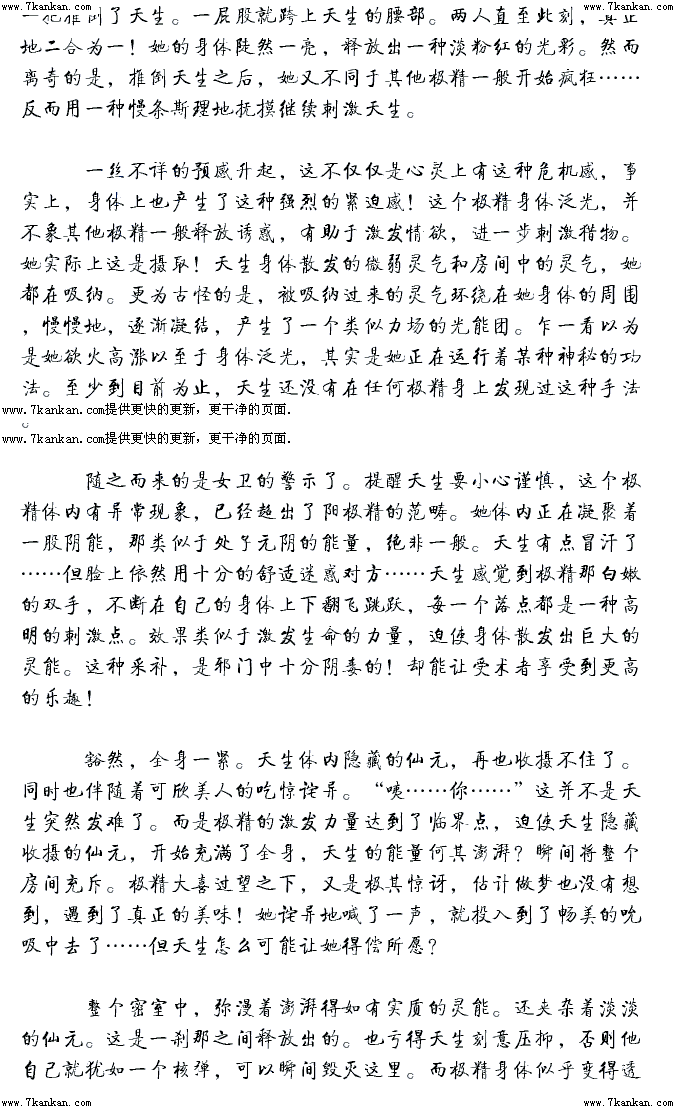 www.7kankan.com www.7kankan.com
一把推倒了天生。一屁股就跨上天生的腰部。两人直至此刻，真正
地二合为一！她的身体陡然一亮，释放出一种淡粉红的光彩。然而
离奇的是，推倒天生之后，她又不同于其他极精一般开始疯狂……
反而用一种慢条斯理地抚摸继续刺激天生。
一丝不详的预感升起，这不仅仅是心灵上有这种危机感，事
实上，身体上也产生了这种强烈的紧迫感！这个极精身体泛光，并
不象其他极精一般释放诱惑，有助于激发情欲，进一步刺激猎物。
她实际上这是摄取！天生身体散发的微弱灵气和房间中的灵气，她
都在吸纳。更为古怪的是，被吸纳过来的灵气环绕在她身体的周围
，慢慢地，逐渐凝结，产生了一个类似力场的光能团。乍一看以为
是她欲火高涨以至于身体泛光，其实是她正在运行着某种神秘的功
法。至少到目前为止，天生还没有在任何极精身上发现过这种手法
www.7kankan.com提供更快的更新，更干净的页面.
。
www.7kankan.com提供更快的更新，更干净的页面.
随之而来的是女卫的警示了。提醒天生要小心谨慎，这个极
精体内有异常现象，已经超出了阳极精的范畴。她体内正在凝聚着
一股阴能，那类似于处子元阴的能量，绝非一般。天生有点冒汗了
……但脸上依然用十分的舒适迷惑对方……天生感觉到极精那白嫩
的双手，不断在自己的身体上下翻飞跳跃，每一个落点都是一种高
明的刺激点。效果类似于激发生命的力量，迫使身体散发出巨大的
灵能。这种采补，是邪门中十分阴毒的！却能让受术者享受到更高
的乐趣！
豁然，全身一紧。天生体内隐藏的仙元，再也收摄不住了。
同时也伴随着可欣美人的吃惊诧异。“咦……你……”这并不是天
生突然发难了。而是极精的激发力量达到了临界点，迫使天生隐藏
收摄的仙元，开始充满了全身，天生的能量何其澎湃？瞬间将整个
房间充斥。极精大喜过望之下，又是极其惊讶，估计做梦也没有想
到，遇到了真正的美味！她诧异地喊了一声，就投入到了畅美的吮
吸中去了……但天生怎么可能让她得偿所愿？
整个密室中，弥漫着澎湃得如有实质的灵能。还夹杂着淡淡
的仙元。这是一刹那之间释放出的。也亏得天生刻意压抑，否则他
自己就犹如一个核弹，可以瞬间毁灭这里。而极精身体似乎变得透
www.7kankan.com www.7kankan.com